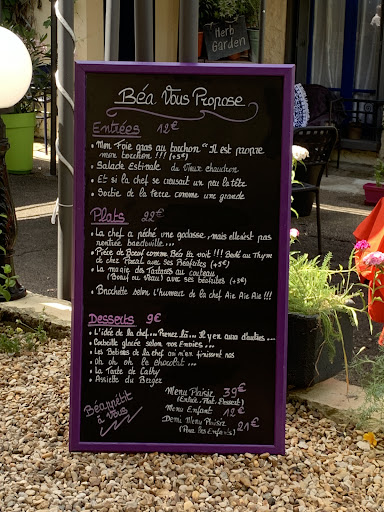 Herb
GARDEN
Béa Vous Propose
Entrées 12€
• Mon Foie gras au torchon "Il est propre
mon torchon !!! (+5€)
• Salade Estivale du Vieux chaudron
• Et si la chef se creusait un peu la tête
• Sortie de la terre comme une grande
Plats 22€
• La chef a pêché une godasse, mais elle n'est pas
rentrée bredouille...
• Pièce de Boeuf comme Béa la voit !!! au Thym
de chez Pascal avec ses
• La magie des Tartares au couteau
(Boeuf ou Veau) avec ses
• Brochette selon l'humeur de la chef Aie Aie Aie !!!
Desserts 9€
• L'idée de la chef... Prenez là... Il y en aura d'autres...
• Corbeille glacée selon nos Envies...
• Les Bêtises de la chef qui n'en finissent pas
• Oh oh oh le chocolat...
• La Tarte de Cathy
• Assiette du Berger
Béappétit
à Vous
Menu Plaisir 39€
(Entrée, Plat, Dessert)
Menu Enfant 12€
Demi Menu Plaisir 21€
(Pour les Enfants)